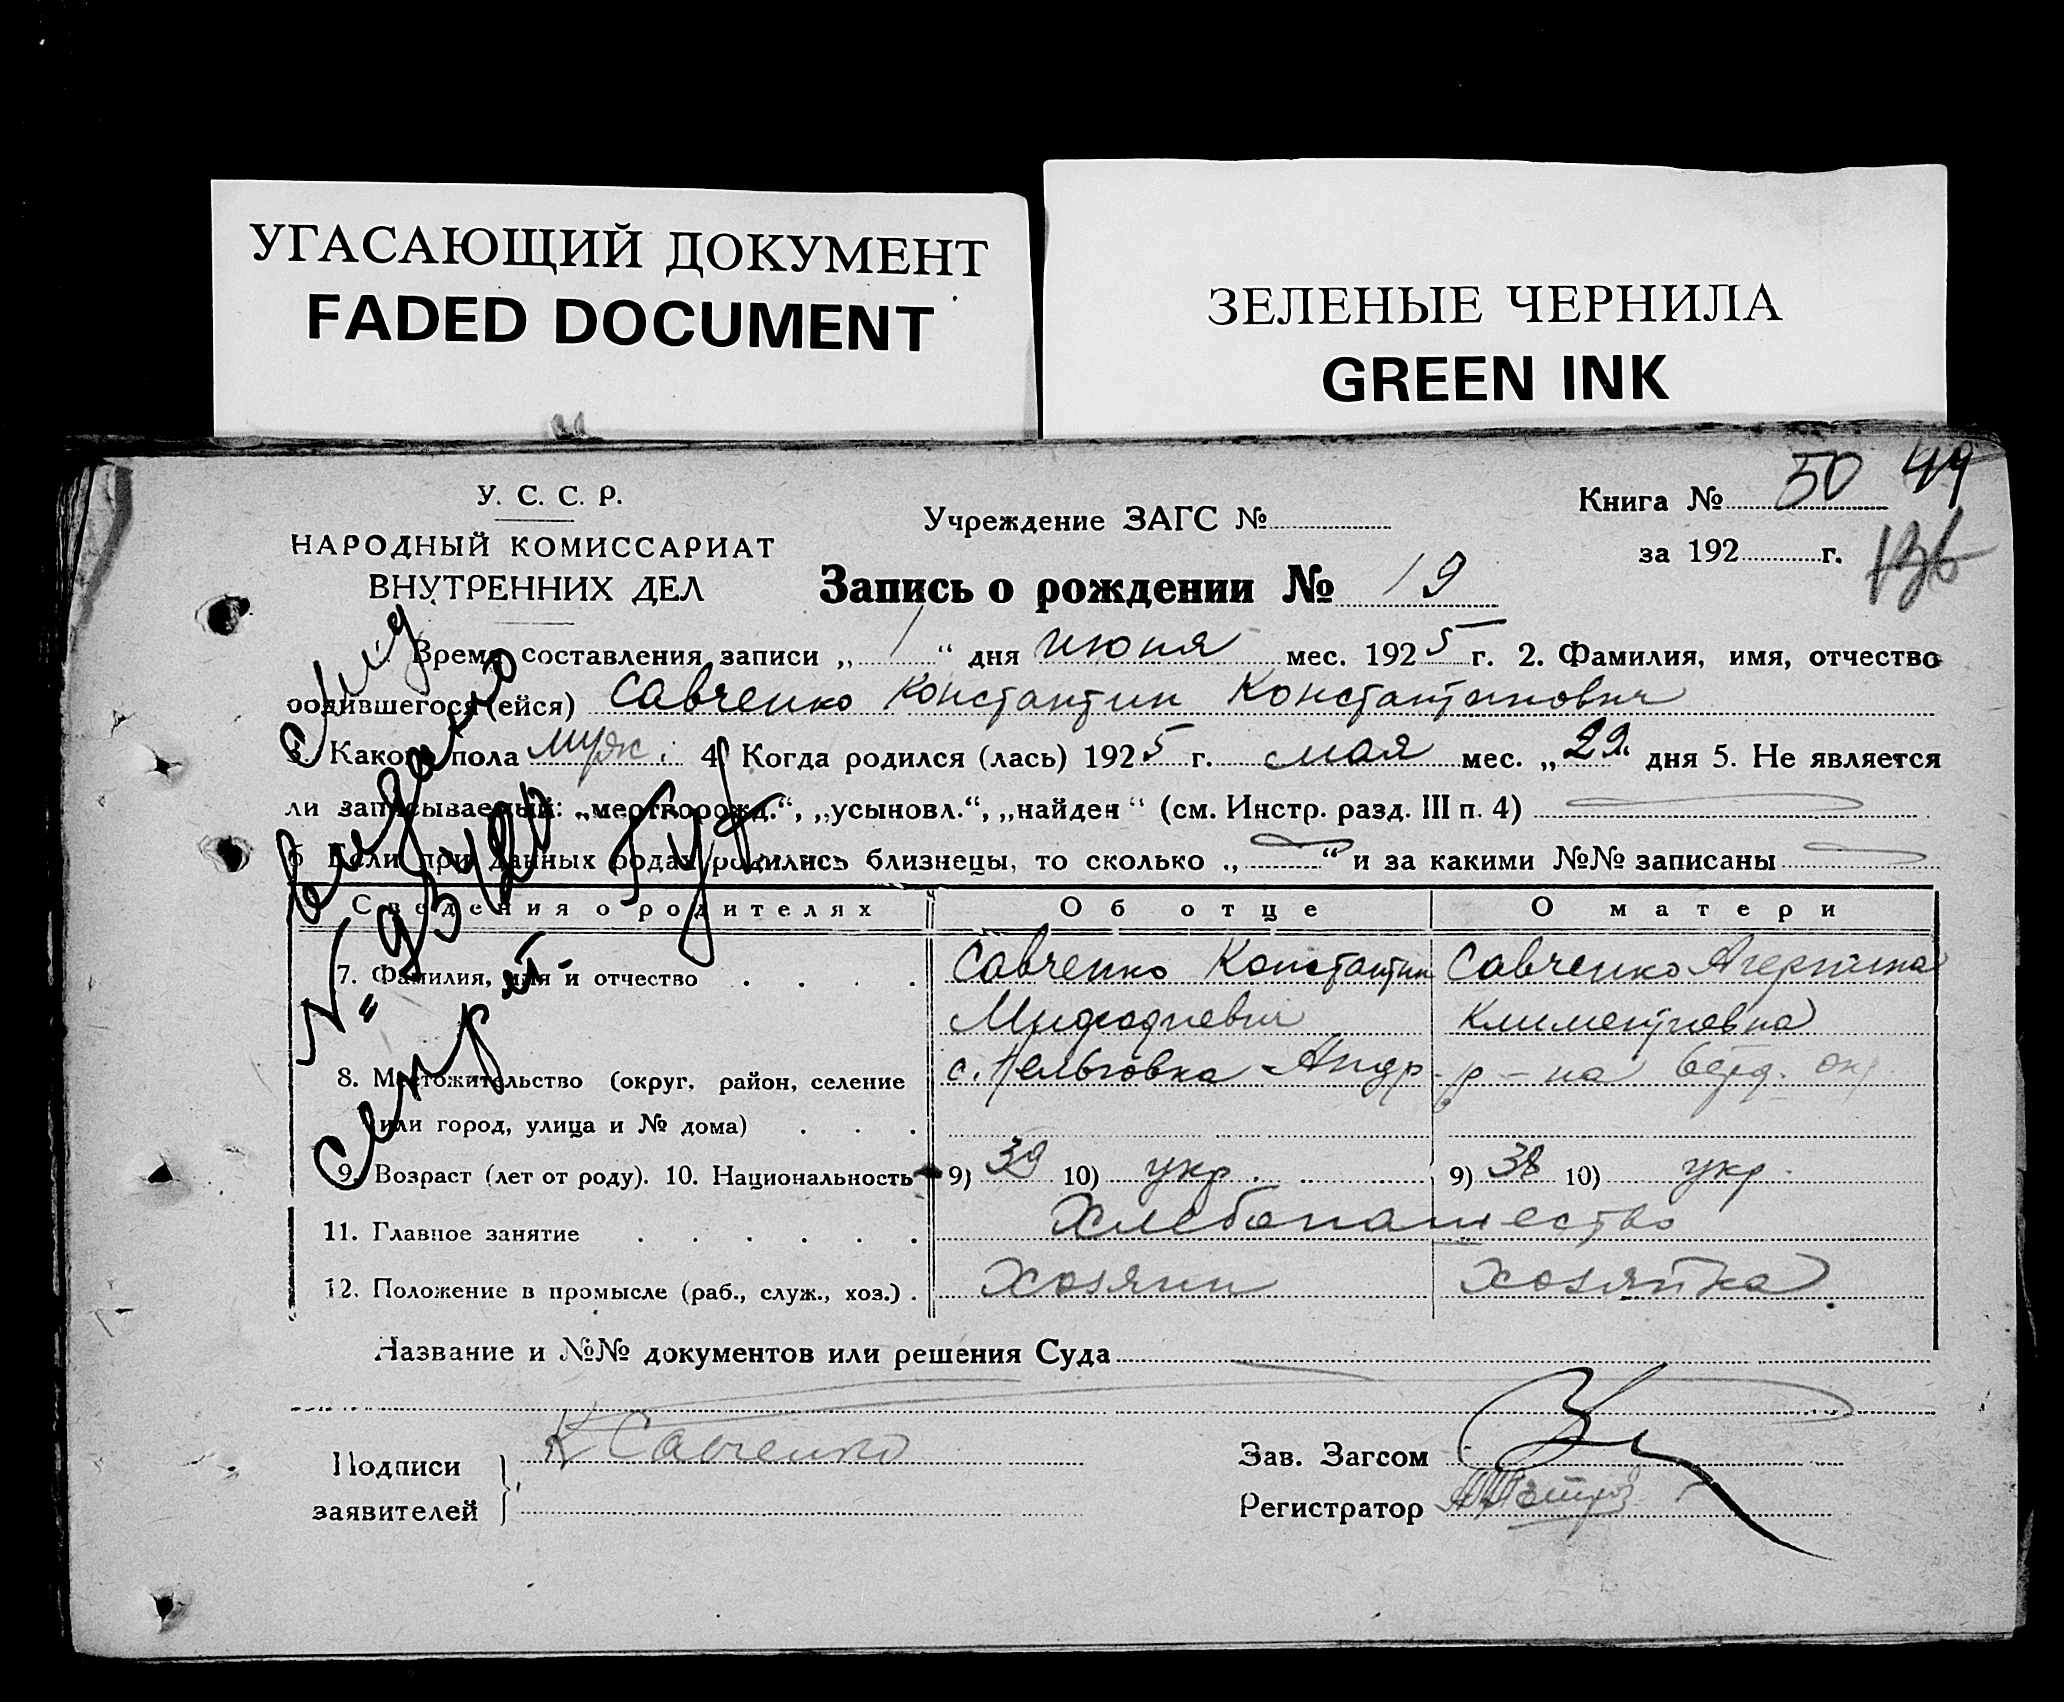 УГАСАЮЩИЙ ДОКУМЕНТ
FADED DOCUMENT
ЗЕЛЕНЫЕ ЧЕРНИЛА
GREEN INK
У. С. С. Р.
НАРОДНЫЙ КОМИССАРИАТ
ВНУТРЕННИХ ДЕЛ
Учреждение ЗАГС №
Книга № 50 49
за 192 г. 136
Запись о рождении № 19
Время составления записи „ 1 “ дня июня мес. 1925 г. 2. Фамилия, имя, отчество
родившегося (ейся) Савченко Константин Константинович
3. Какого пола муж. 4. Когда родился (лась) 1925 г. мая мес. „ 29. дня 5. Не является
ли записываемый: „мертворожд.“, „усыновл.“, „найден“ (см. Инстр. разд. III п. 4)
6 Если при данных родах родились близнецы, то сколько „ “ и за какими №№ записаны
Сведения о родителях Об отце О матери
7. Фамилия, имя и отчество Савченко Константин Савченко
Климентиевна
8. Местожительство (округ, район, селение с. Андр. р-на Берд. окр.
или город, улица и № дома)
9. Возраст (лет от роду). 10. Национальность 9) 39 10) укр. 9) 38 10) укр.
11. Главное занятие Хлебопашество
12. Положение в промысле (раб., служ., хоз.) Хозяин хозяйка
Название и №№ документов или решения Суда
Подписи
заявителей
К Савченко
Зав. Загсом
Регистратор